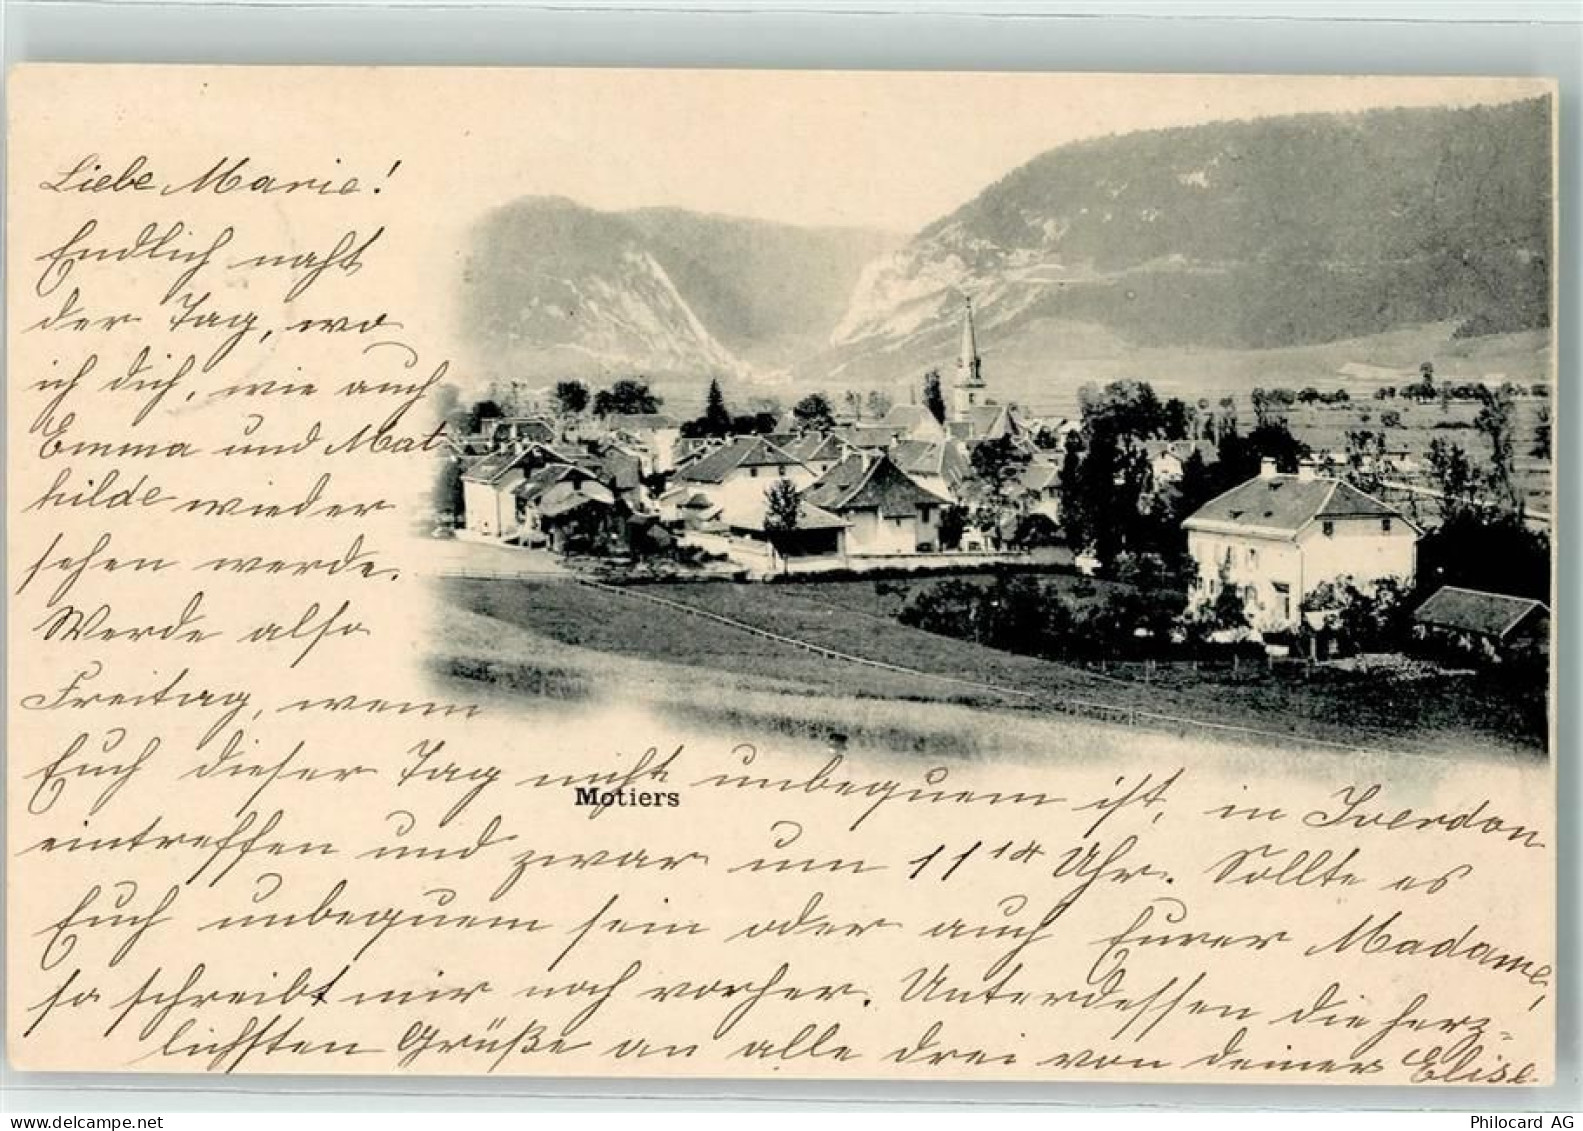 Liebe Marie!
Endlich naht
der Tag, wo
ich dich, wie auch
Emma und Mat
hilde wieder
sehen werde.
Werde also
Freitag, wenn
Euch dieser Tag nicht unbequem ist, in Iverdon
Motiers
eintreffen und zwar um 11 14 Uhr. Sollte es
Euch unbequem sein oder auch Eurer Madame,
so schreibt mir noch vorher. Unterdessen die herz-
lichsten Grüße an alle drei von deiner Elise.
www.delcampe.net
Philocard AG